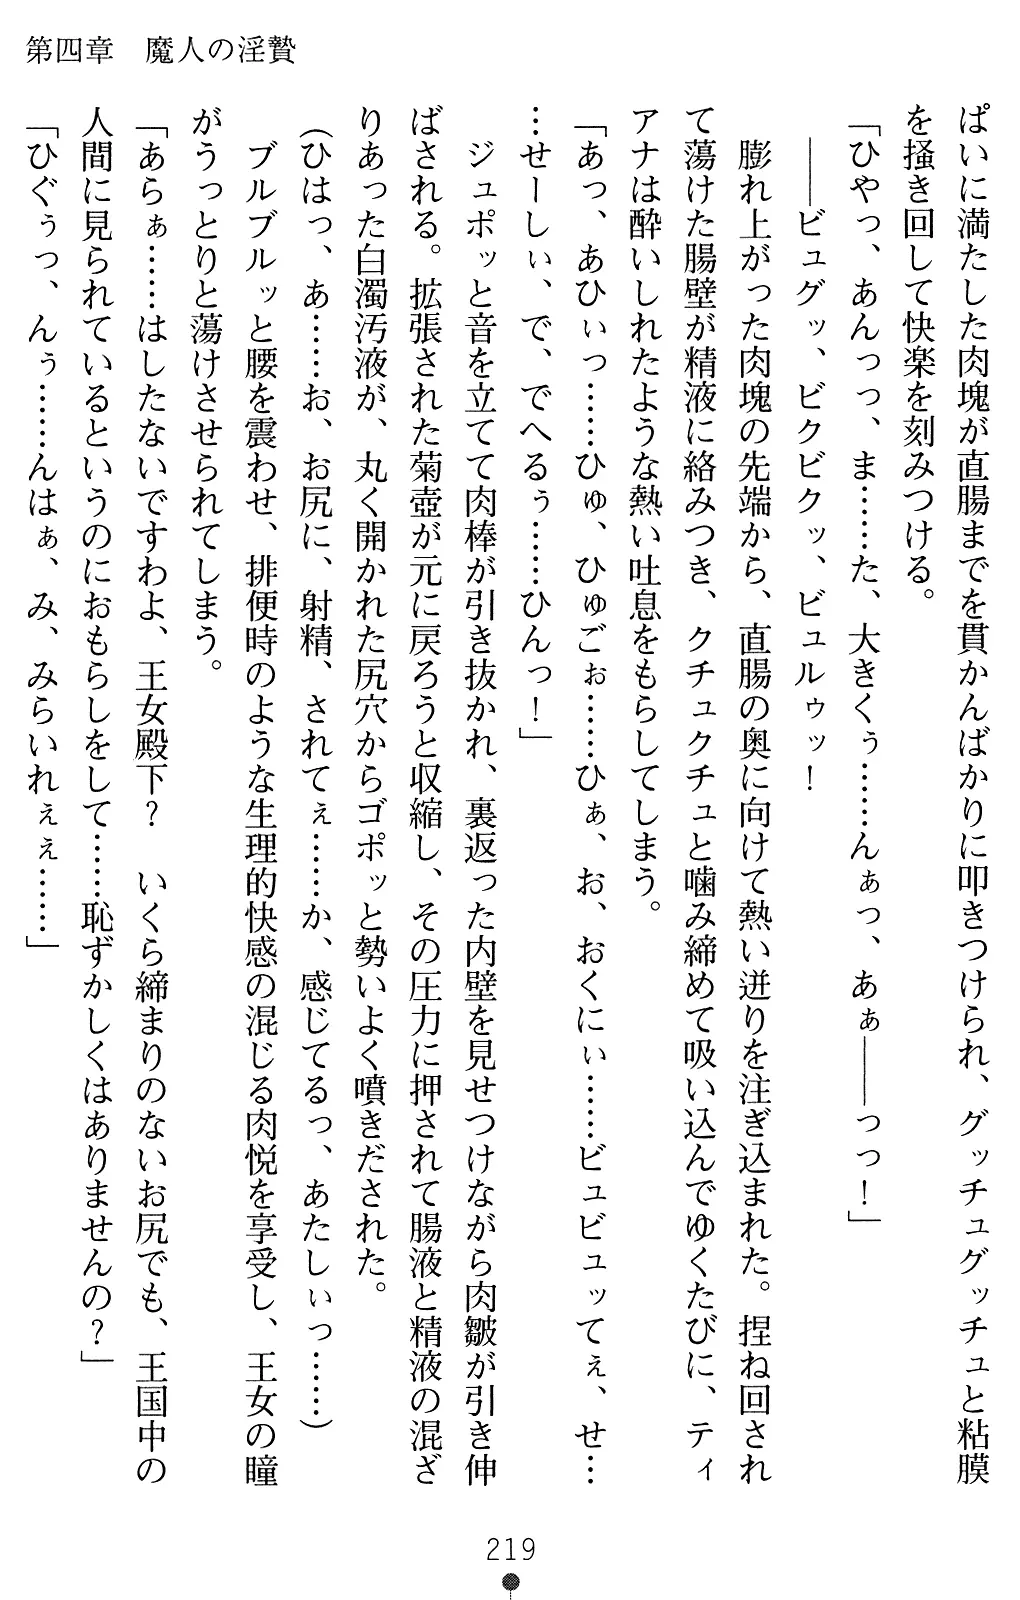 第四章　魔人の淫贄
ぱいに満たした肉塊が直腸までを貫かんばかりに叩きつけられ、グッチュグッチュと粘膜
を掻き回して快楽を刻みつける。
「ひやっ、あんっっ、ま……た、大きくぅ……んぁっ、あぁ――っっ！」
――ビュグッ、ビクビクッ、ビュルゥッ！
膨れ上がった肉塊の先端から、直腸の奥に向けて熱い迸りを注ぎ込まれた。捏ね回され
て蕩けた腸壁が精液に絡みつき、クチュクチュと噛み締めて吸い込んでゆくたびに、ティ
アナは酔いしれたような熱い吐息をもらしてしまう。
「あっ、あひぃっ……ひゅ、ひゅごぉ……ひぁ、お、おくにぃ……ビュビュッてぇ、せ…
…せーしぃ、で、でへるぅ……ひんっ！」
ジュポッと音を立てて肉棒が引き抜かれ、裏返った内壁を見せつけながら肉皺が引き伸
ばされる。拡張された菊壺が元に戻ろうと収縮し、その圧力に押されて腸液と精液の混ざ
りあった白濁汚液が、丸く開かれた尻穴からゴポッと勢いよく噴きだされた。
（ひはっ、あ……お、お尻に、射精、されてぇ……か、感じてるっ、あたしぃっ……）
ブルブルッと腰を震わせ、排便時のような生理的快感の混じる肉悦を享受し、王女の瞳
がうっとりと蕩けさせられてしまう。
「あらぁ……はしたないですわよ、王女殿下？　いくら締まりのないお尻でも、王国中の
人間に見られているというのにおもらしをして……恥ずかしくはありませんの？」
「ひぐぅっ、んぅ……んはぁ、み、みらいれぇぇ……」
219